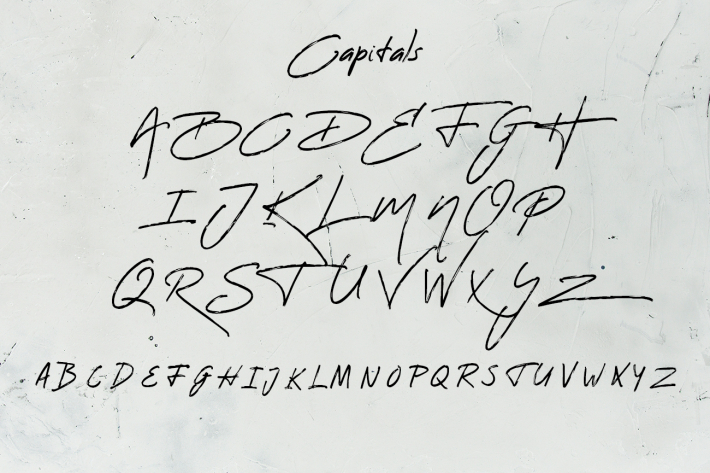 Capitals
A B C D E F G H
I J K L M N O P
Q R S T U V W X Y Z
A B C D E F G H I J K L M N O P Q R S T U V W X Y Z